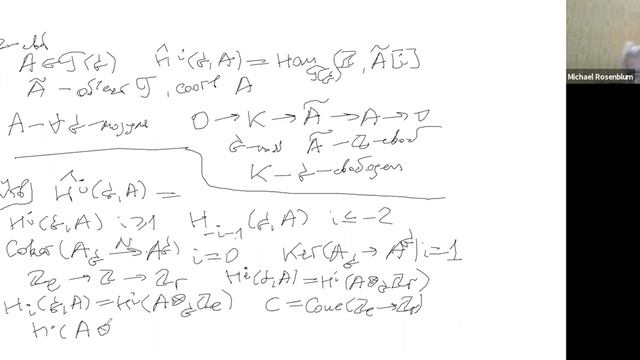 A ∈ T(g) Ĥ^i(g,A) = Hom_{T(g)}(ℤ, Ã[i])
à – объект T, соотв A
A – ∀ g-модуль 0 → K → à → A → 0
g-mod à – ℤ-своб
K – g-свободен
Утв) Ĥ^i(g,A) =
H^i(g,A) i ≥ 1 H_{-i-1}(g,A) i ≤ -2
Coker(A_g →^N A^g) i=0 Ker(A_g → A^g) i=-1
ℤ_e → ℤ → ℤ_r H^i(g,A) = H^i(A⊗_g ℤ_r)
H_i(g,A) = H^i(A⊗_g ℤ_e) C = Cone(ℤ_e → ℤ_r)
H^i(A⊗
Michael Rosenblum